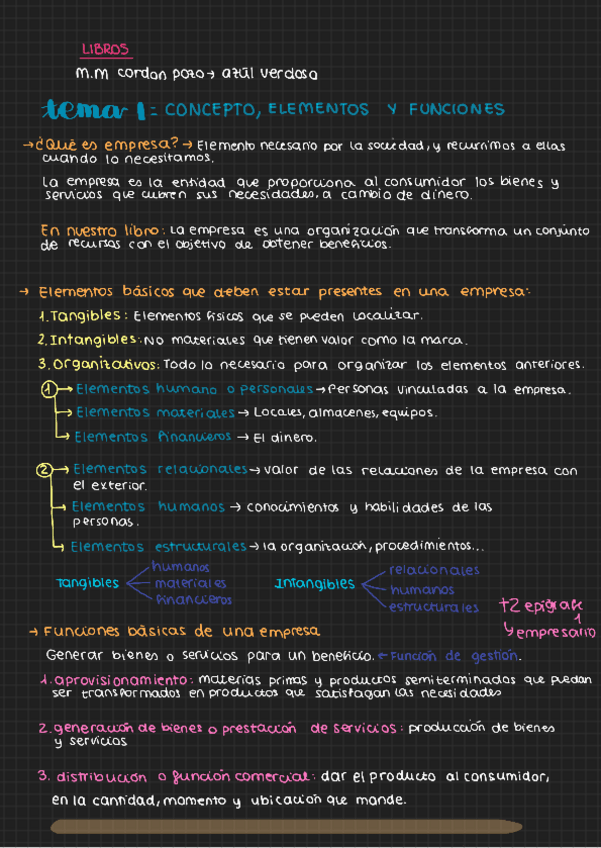 LIBROS
M.M cordon pozo → azúl verdosa
tema 1 = CONCEPTO, ELEMENTOS Y FUNCIONES
→ ¿Qué es empresa? → Elemento necesario por la sociedad, y recurrimos a ellas
cuando lo necesitamos.
La empresa es la entidad que proporciona al consumidor los bienes y
servicios que cubren sus necesidades, a cambio de dinero.
En nuestro libro: La empresa es una organización que transforma un conjunto
de recursos con el objetivo de obtener beneficios.
→ Elementos básicos que deben estar presentes en una empresa:
1. Tangibles: Elementos físicos que se pueden localizar.
2. Intangibles: No materiales que tienen valor como la marca.
3. Organizativos: Todo lo necesario para organizar los elementos anteriores.
① → Elementos humano o personales → Personas vinculadas a la empresa.
→ Elementos materiales → Locales, almacenes, equipos.
→ Elementos financieros → El dinero.
② → Elementos relacionales → valor de las relaciones de la empresa con
el exterior.
→ Elementos humanos → conocimientos y habilidades de las
personas.
→ Elementos estructurales → la organización, procedimientos...
Tangibles
humanos
materiales
financieros
Intangibles
relacionales
humanos
estructurales
+2 epígrafe
1
y empresario
→ Funciones básicas de una empresa
Generar bienes o servicios para un beneficio. ← Función de gestión.
1. aprovisionamiento: materias primas y productos semiterminados que puedan
ser transformados en productos que satisfagan las necesidades
2. generación de bienes o prestación de servicios: producción de bienes
y servicios
3. distribución o función comercial: dar el producto al consumidor,
en la cantidad, momento y ubicación que mande.